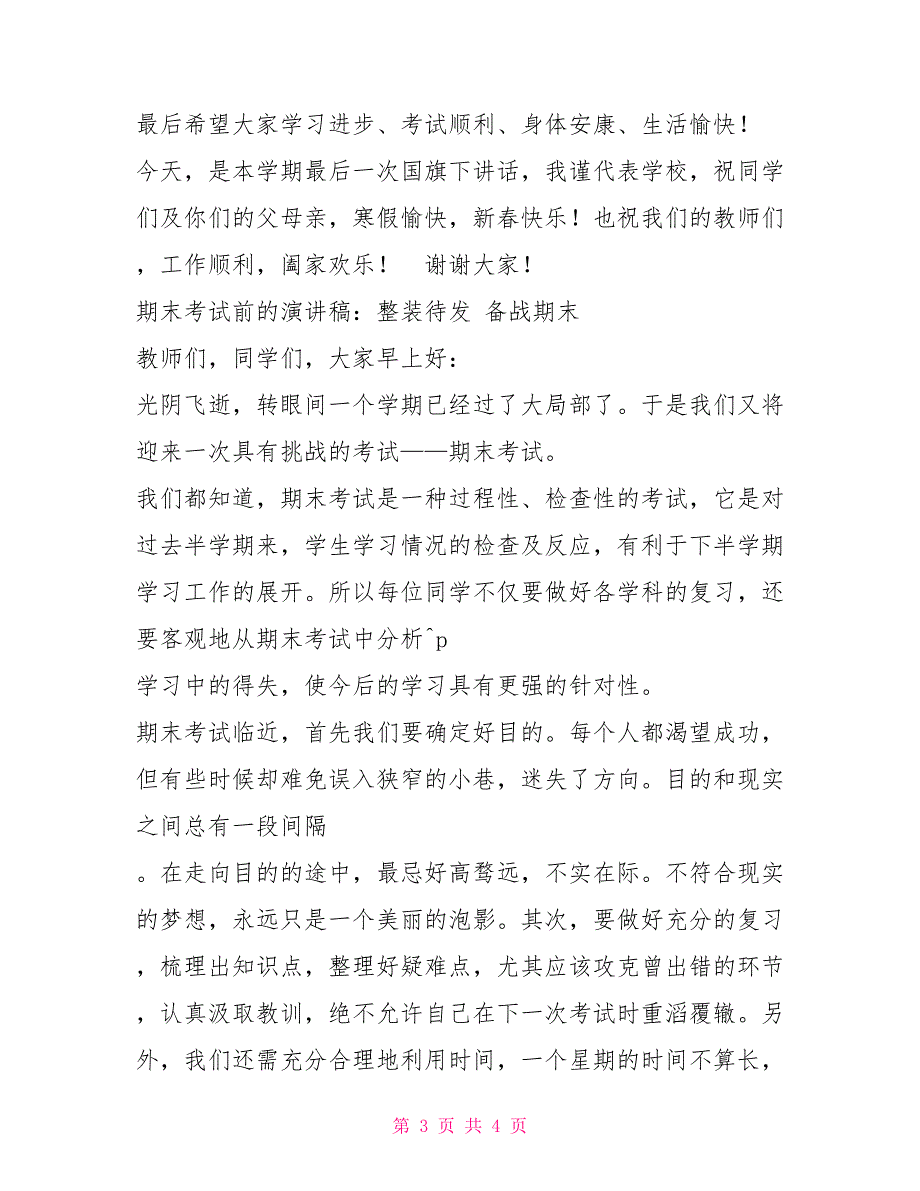 最后希望大家学习进步、考试顺利、身体安康、生活愉快！
今天，是本学期最后一次国旗下讲话，我谨代表学校，祝同学
们及你们的父母亲，寒假愉快，新春快乐！也祝我们的教师们
，工作顺利，阖家欢乐！　谢谢大家！
期末考试前的演讲稿：整装待发 备战期末
教师们，同学们，大家早上好：
光阴飞逝，转眼间一个学期已经过了大局部了。于是我们又将
迎来一次具有挑战的考试——期末考试。
我们都知道，期末考试是一种过程性、检查性的考试，它是对
过去半学期来，学生学习情况的检查及反应，有利于下半学期
学习工作的展开。所以每位同学不仅要做好各学科的复习，还
要客观地从期末考试中分析^p
学习中的得失，使今后的学习具有更强的针对性。
期末考试临近，首先我们要确定好目的。每个人都渴望成功，
但有些时候却难免误入狭窄的小巷，迷失了方向。目的和现实
之间总有一段间隔
。在走向目的的途中，最忌好高骛远，不实在际。不符合现实
的梦想，永远只是一个美丽的泡影。其次，要做好充分的复习
，梳理出知识点，整理好疑难点，尤其应该攻克曾出错的环节
，认真汲取教训，绝不允许自己在下一次考试时重滔覆辙。另
外，我们还需充分合理地利用时间，一个星期的时间不算长，
第 3 页 共 4 页